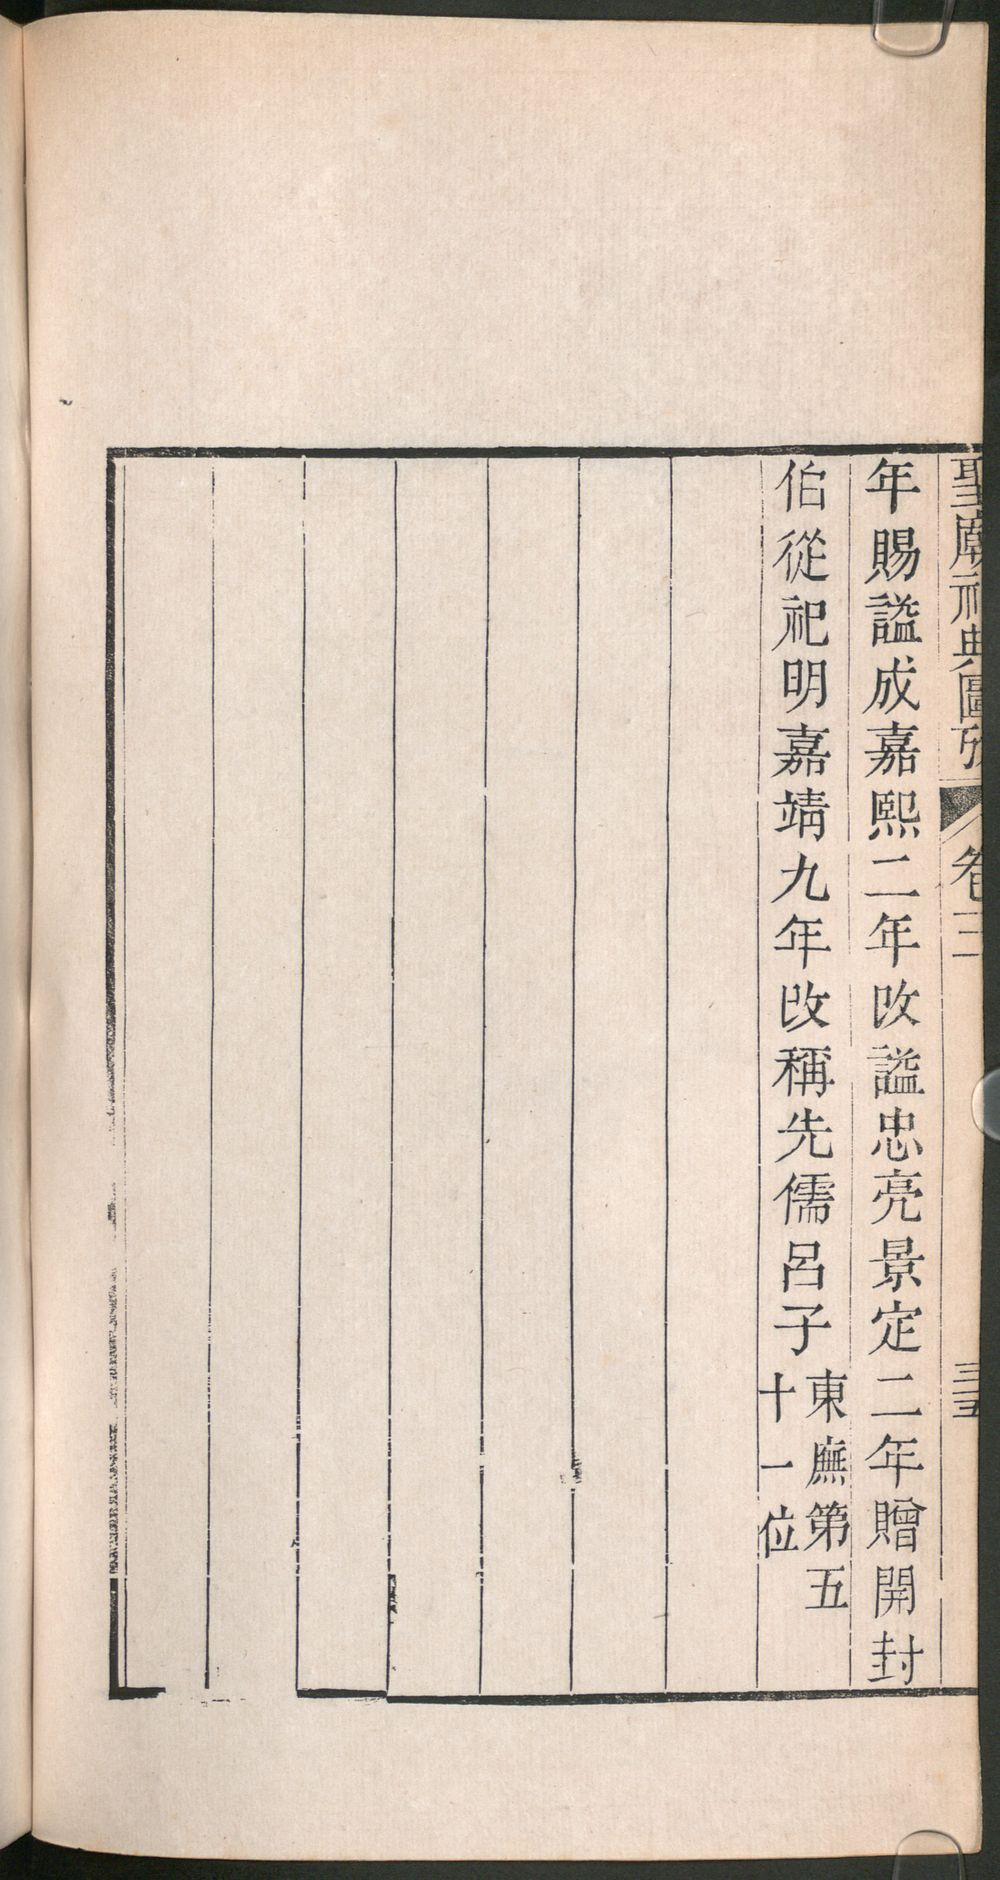 聖廟祀典圖攷
卷三
三五
年賜謚成嘉熙二年改謚忠亮景定二年贈開封
伯從祀明嘉靖九年改稱先儒呂子
東廡第五
十一位